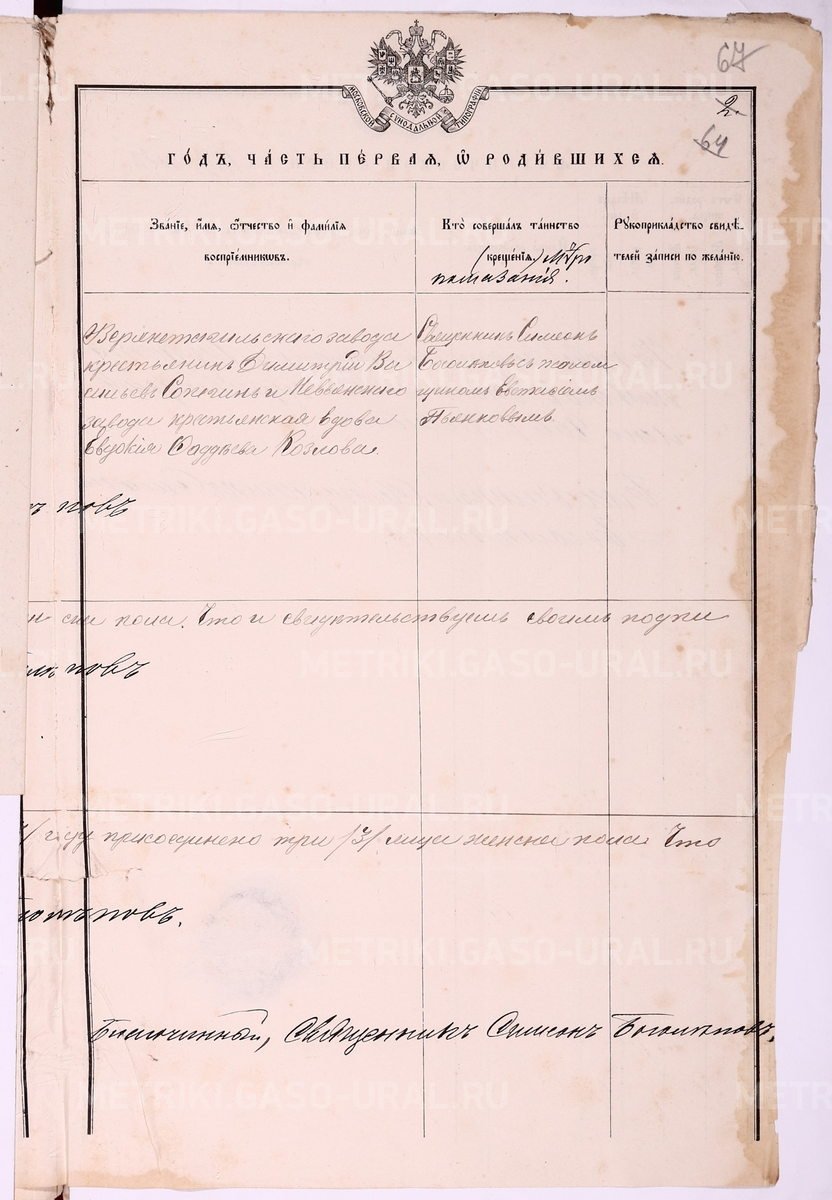 67
2.
64
МОСКОВСКОЙ СѴНОДАЛЬНОЙ ТИПОГРАФІИ
ГО́ДЪ, ЧА́СТЬ ПЕ́РВАЯ, Ѽ РОДИ́ВШИХСЯ.
Зва́нїе, и҆́мя, ѻ҆́тчество и҆ фами́лїя
воспрїе́мникѡвъ.
Кто̀ соверша́лъ та́инство
(креще́нїя) Мѵро
помазанія.
Рꙋкоприкла́дство свидѣ́-
телей за́писи по жела́нїю.
Верхнетагильскаго завода
крестьянинъ Димитрій Ва
сильевъ и Невьянскаго
завода крестьянская вдова
Евдокія Фаддѣева Козлова.
Священникъ Симеонъ
Боголѣповъ съ псалом
щикомъ
Пьянковымъ.
повъ
пола. Что и свидѣтельствуемъ своимъ подпи
повъ
году присоединено три /3/ лица женска пола. Что
повъ.
Благочинный, Священникъ Симеонъ Боголѣповъ.
METRIKI.GASO-URAL.RU